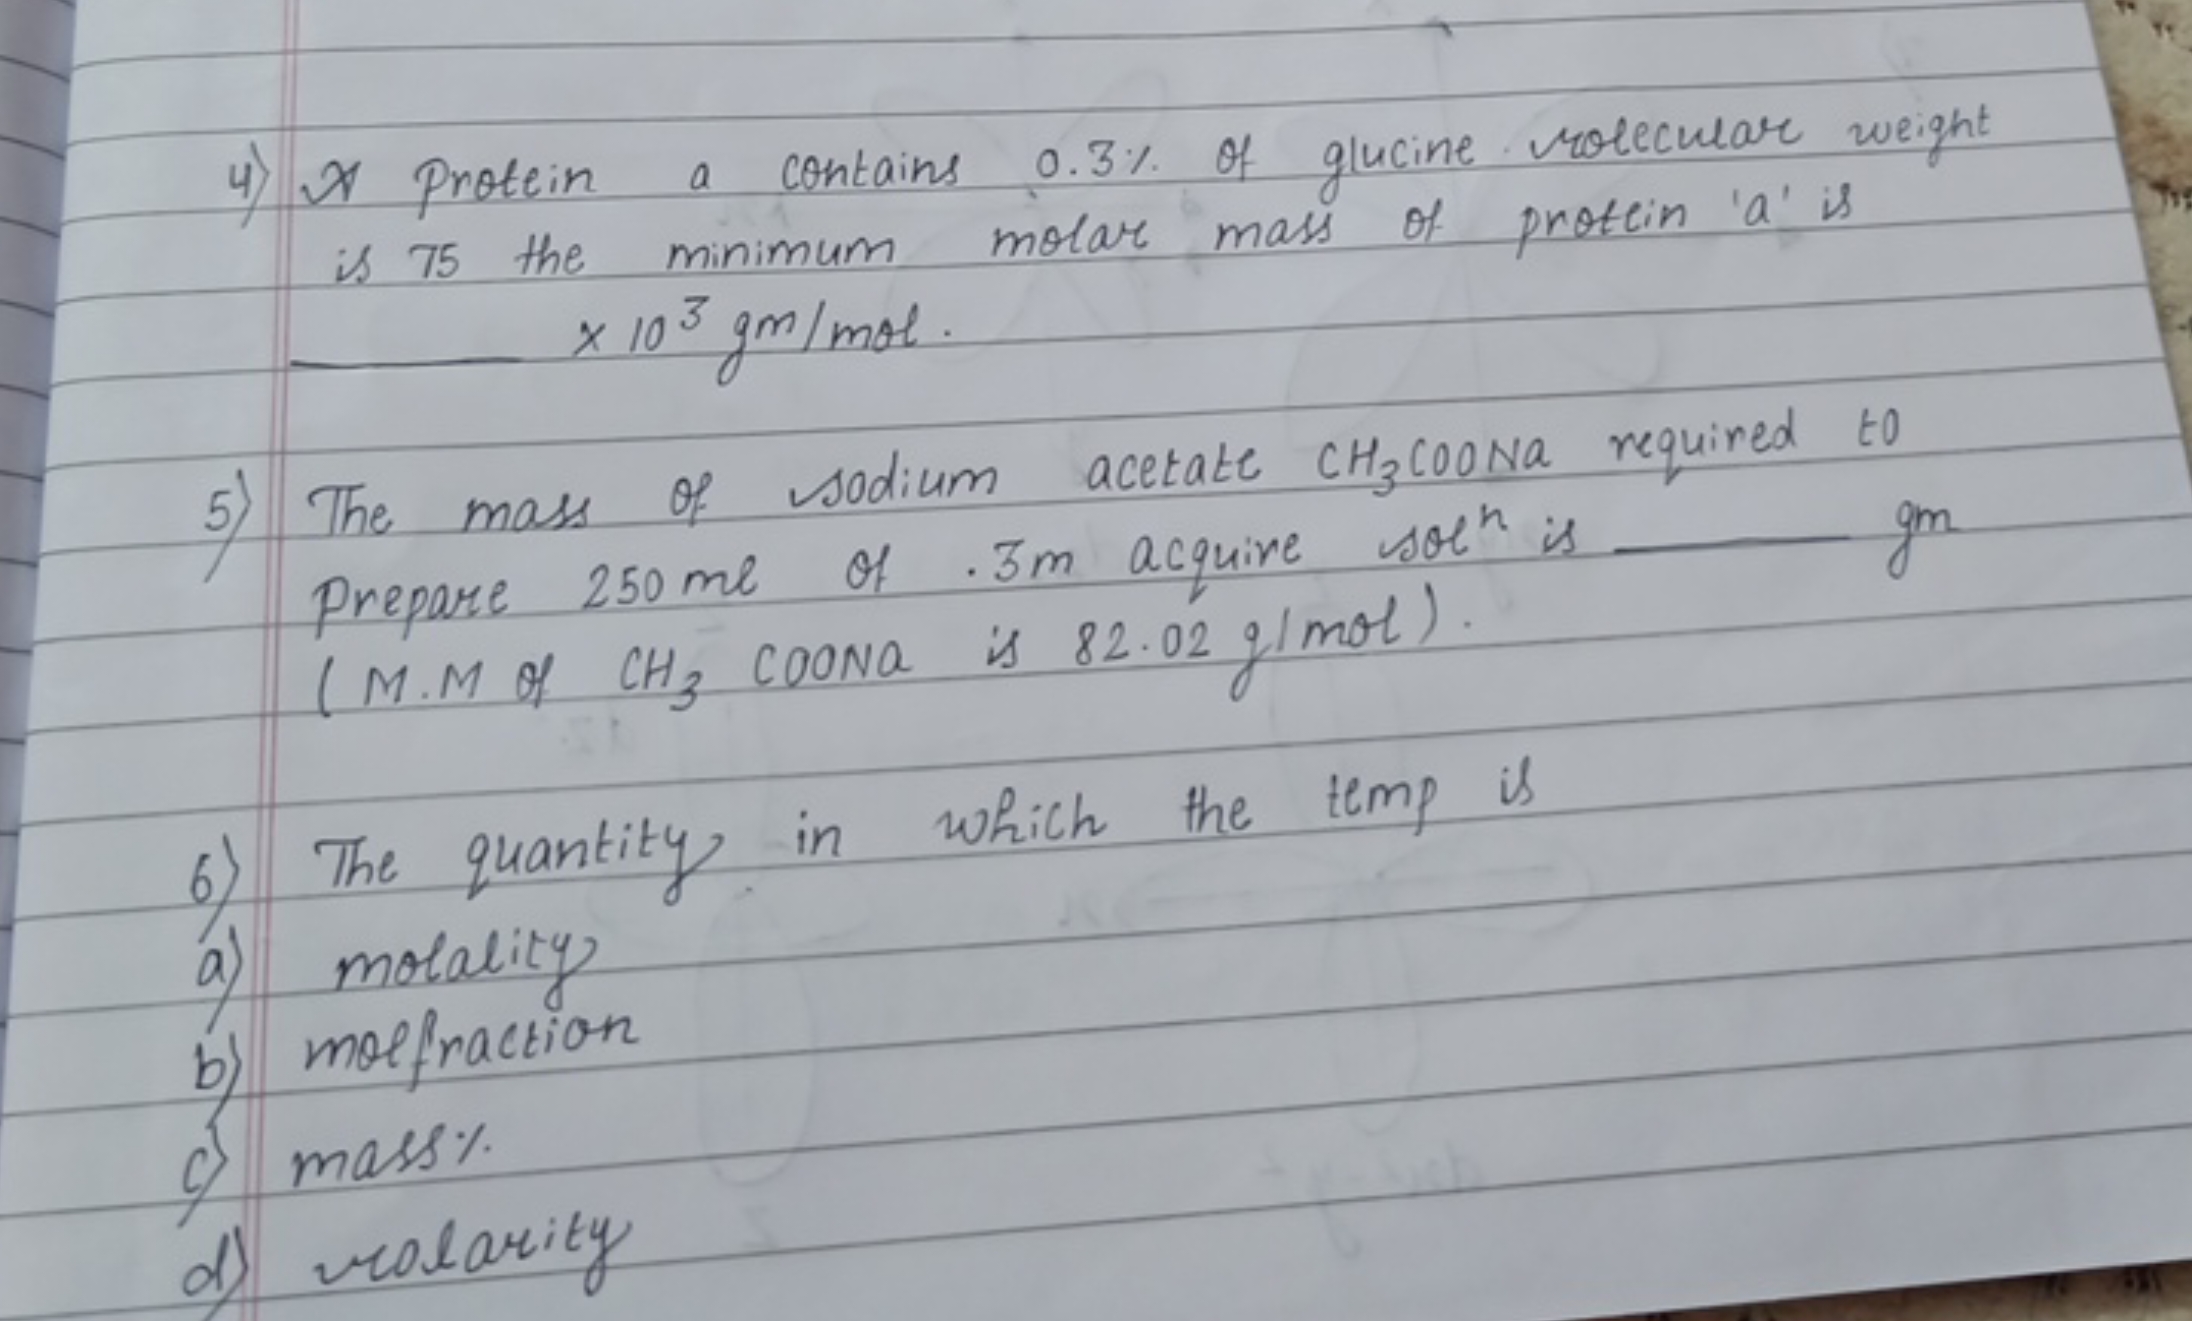 4) A Protein a contains 0.3% of glucine molecular weight
is 75 the minimum molar mass of protein 'a' is
______ x 10³ gm/mol.
5) The mass of sodium acetate CH₃COONa required to
Prepare 250 ml of .3m acquire solⁿ is ______ gm
(M.M of CH₃ COONa is 82.02 g/mol).
6) The quantity in which the temp is
a) molality
b) molfraction
c) mass%
d) molarity